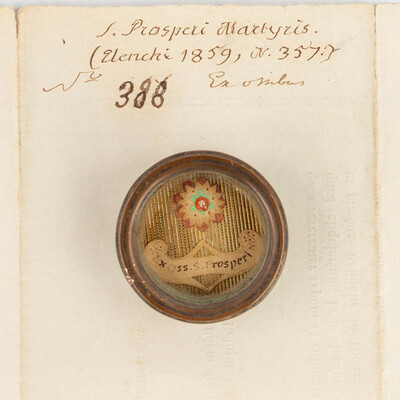 S. Prosperi Martyris.
(Elenchi 1859, N. 357.)
No 388 Ex ossibus
Ex Oss. S. Prosperi M.